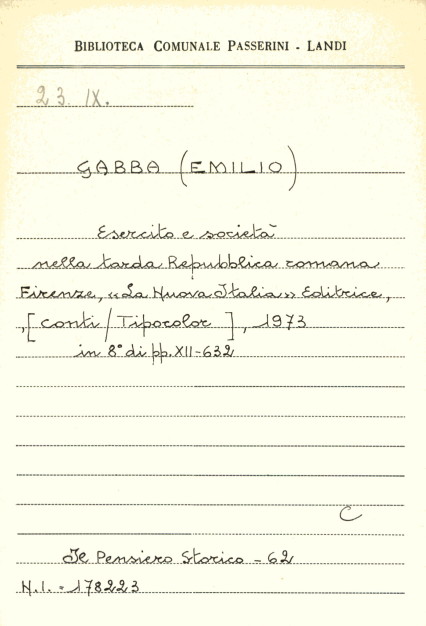 BIBLIOTECA COMUNALE PASSERINI - LANDI
23. IX.
GABBA (EMILIO)
Esercito e società
nella tarda Repubblica romana
Firenze, «La Nuova Italia» Editrice,
,[conti/Tipocolor], 1973
in 8° di pp. XII-632
C
Il Pensiero Storico - 62
N.I. - 178223